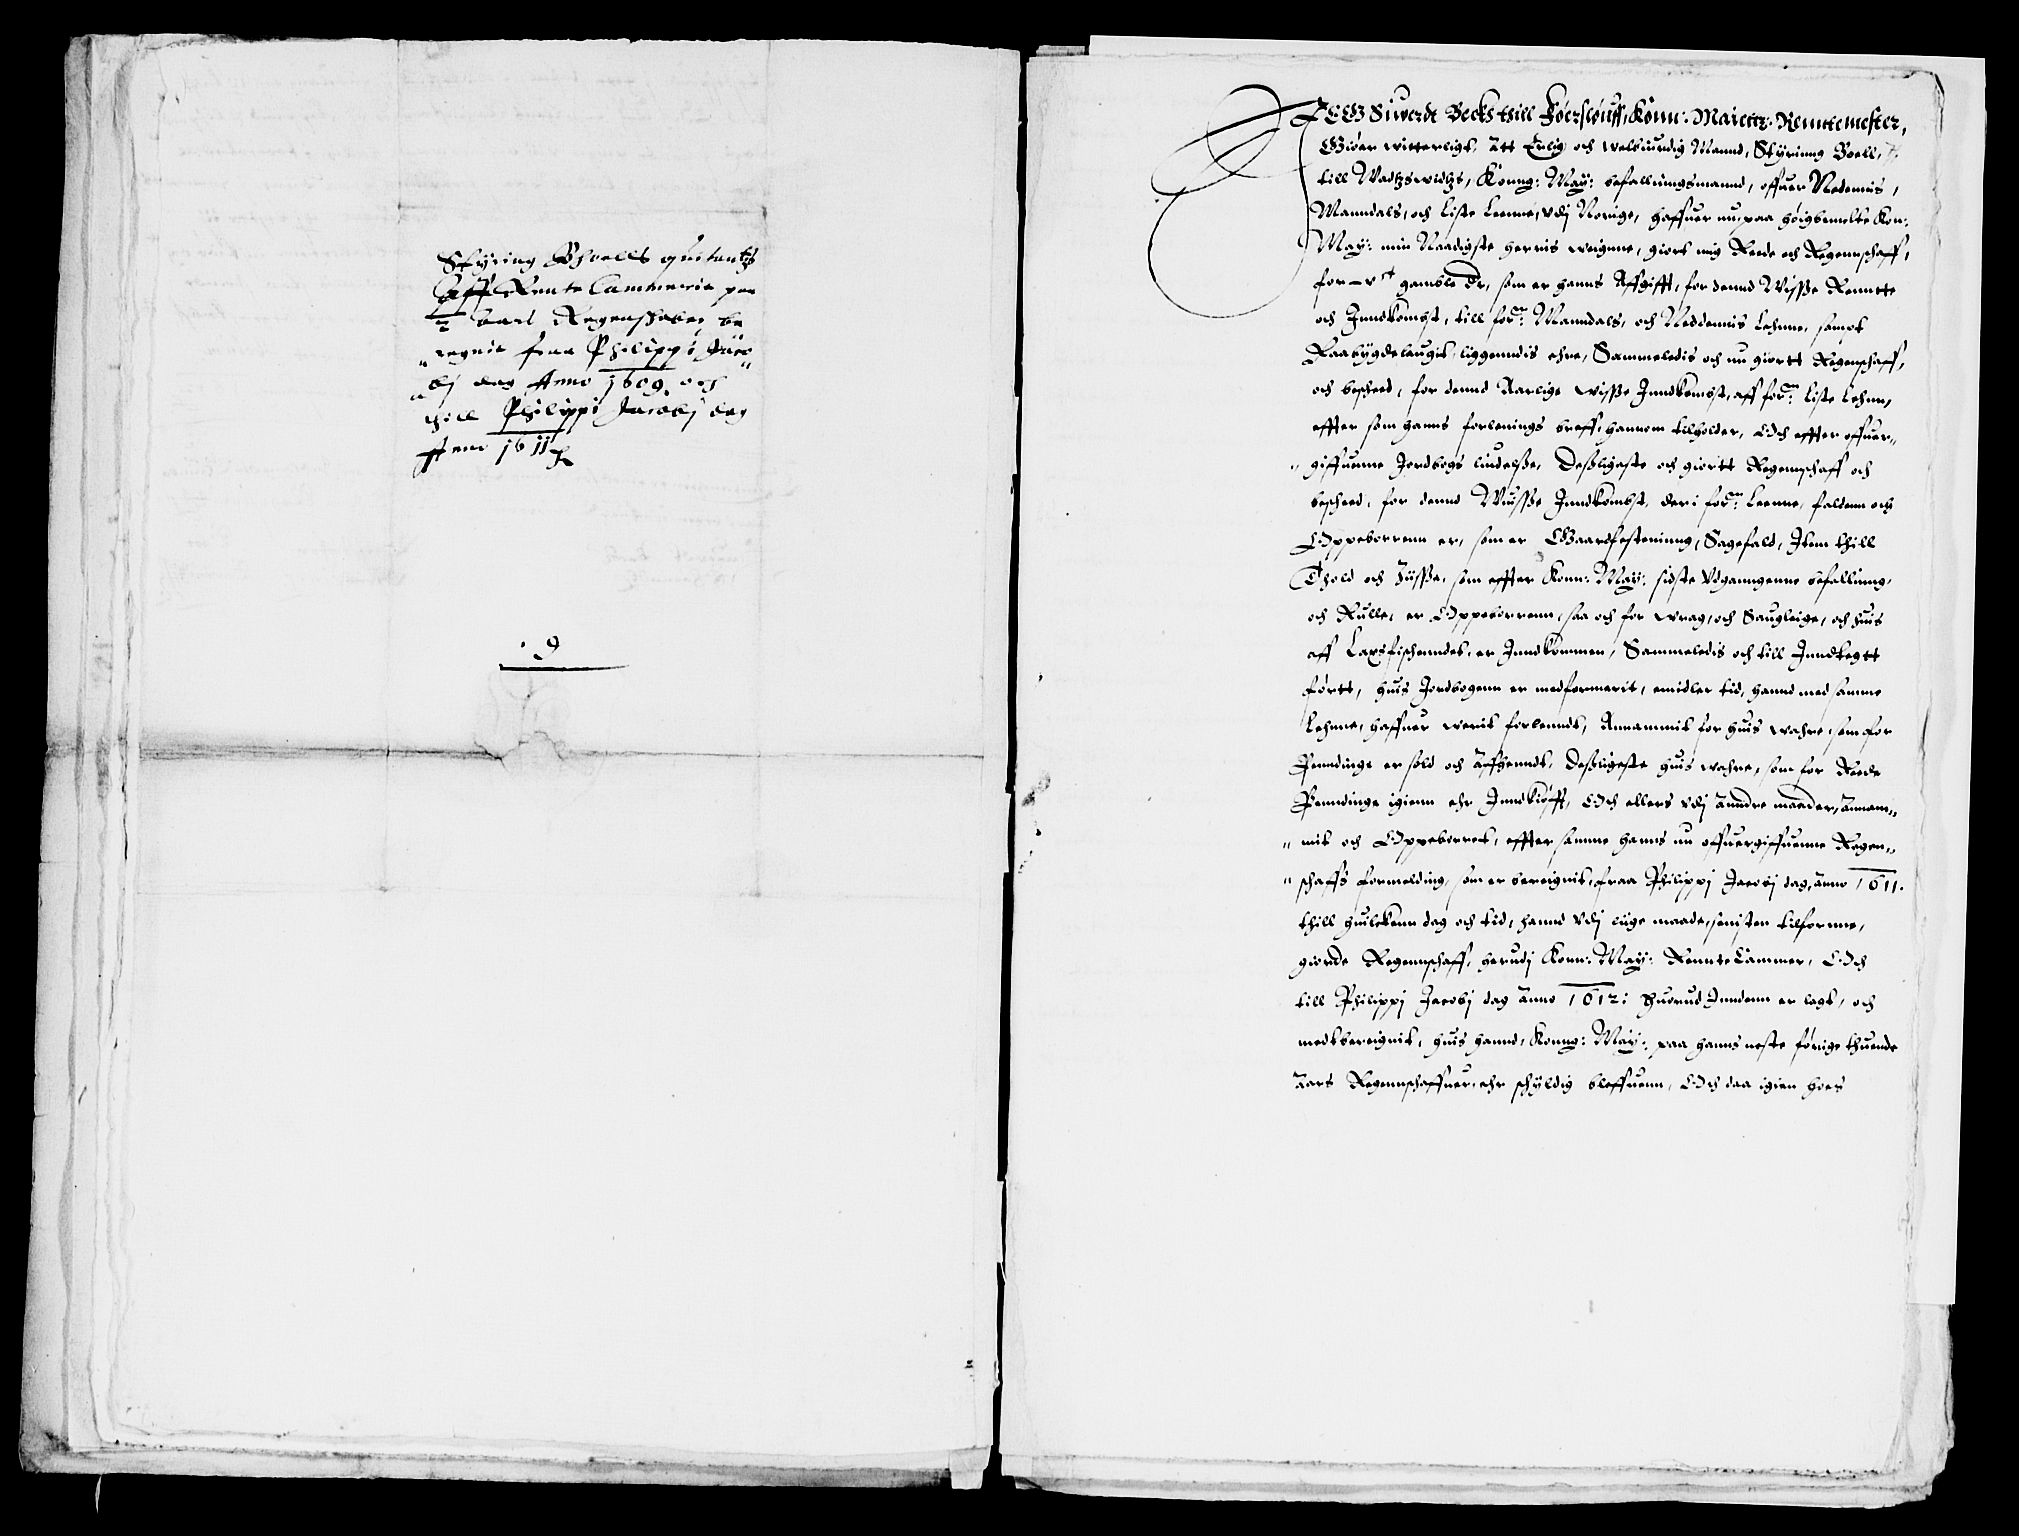 Styring Bhoells quitantz
Aff Rente Cammerit paa
2 aars Regenskaber be
regnit fraa Philippi Jaco
bj dag Anno 1609, och
thill Philippi Jacobj dag
Anno 1611
9
JEG Siwerdt Becks thill Føerslouff, Konn: Maiettz: Renntemester,
Giøer witterligt, att Erlig och welbiurdig Mannd, Styriung Boell,
till Wadtzwidtz, Konng: May: befallingsmannd, offuer Nedennis,
Manndals, och Liste Leenne, vdj Norige, haffuer nu, paa høigbemelte Kon:
May: min Naadigste herris weignne, giort mig Rede och Regennschaff,
for gamble Dr, som er hanns Affgifft, for dennd Wisse Renntte
och Inndkombst, till for: Manndals, och Neddennis Lehnne, sampt
Raabygdelaugit, liggenndis ehne, Sammeledis och nu giortt Regenschaff,
och beskeed, for dennd Aarlige wisse Inndkombst, aff for: Liste Lehnn,
effter som hanns forlenings breff, hannom tilholder, Och effter offuer„
„giffuenne Jordbogs liudelsse, Desligeste och giortt Regennschaff och
bescheed, for dennd Wuisse Inndkombst, der i for: Leenne, faldenn och
Oppeborrenn er, som er Gaardfestening, Sagefald, Item thill
Thold och Zysse, som effter Konn: May: sidste Vdganngenne befalling,
och Rulle, er Oppeborrenn, saa och for wrag, och Saugleige, och huis
aff Laxsfischenndet, er Inndkommen, Sammeledis och till Inndtegtt
førtt, huis Jordbogenn er medformerit, emidler tid, hannd med samme
Lehnne, haffuer werit forlenndt, Annammit for huis wahre, som for
Penndinge er sold och affhenndt, Desligeste huis wahre, som for Rede
Penndinge igienn ehr Inndkiøfft, Och ellers vdj anndre maader, annam„
„mit och Oppeborret, effter samme hanns nu offuergiffuenne Regen„
„schaffs formelding, som er beregnit, fraa Philippj Jacobj dag, anno 1611.
thill huilckenn dag och tid, hannd vdj lige maade, senisten tilfornne,
giorde Regennschaff, herudj Konn: May: RennteCammer, Och
till Philippj Jacobj dag anno 1612: Huorud Inndenn er lagt, och
medtbereignit, huis hannd, Konng: May: paa hanns neste førige thuende
Aars Regennschaffuer, ehr schyldig bleffuenn, Och daa igien hoes